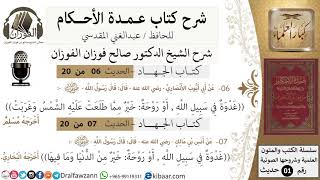 شرح كتاب عمدة الأحكام
للحافظ / عبدالغني المقدسي
شرح الشيخ الدكتور صالح فوزان الفوزان
كتاب الجهاد - الحديث 06 من 20
06- عَنْ أَبِي أَيُّوبَ الأَنْصَارِيِّ - رضي الله عنه - قَالَ: قَالَ رَسُولُ اللَّهِ ﷺ -:
((غَدْوَةٌ فِي سَبِيلِ اللَّهِ , أَوْ رَوْحَةٌ: خَيْرٌ مِمَّا طَلَعَتْ عَلَيْهِ الشَّمْسُ وَغَرَبَتْ)) أَخْرَجَهُ مُسْلِمٌ
كتاب الجهاد - الحديث 07 من 20
07- عَنْ أَنَسِ بْنِ مَالِكٍ - رضي الله عنه - قَالَ: قَالَ رَسُولُ اللَّهِ ﷺ -:
((غَدْوَةٌ فِي سَبِيلِ اللَّهِ , أَوْ رَوْحَةٌ: خَيْرٌ مِنَ الدُّنْيَا وَمَا فِيهَا)) أَخْرَجَهُ الْبُخَارِيُّ
الفوزان
كبار العلماء
سلسلة الكتب والمتون
العلمية وشروحها الصوتية
رقم 01 حديث
Dralfawzann
kibaar.com